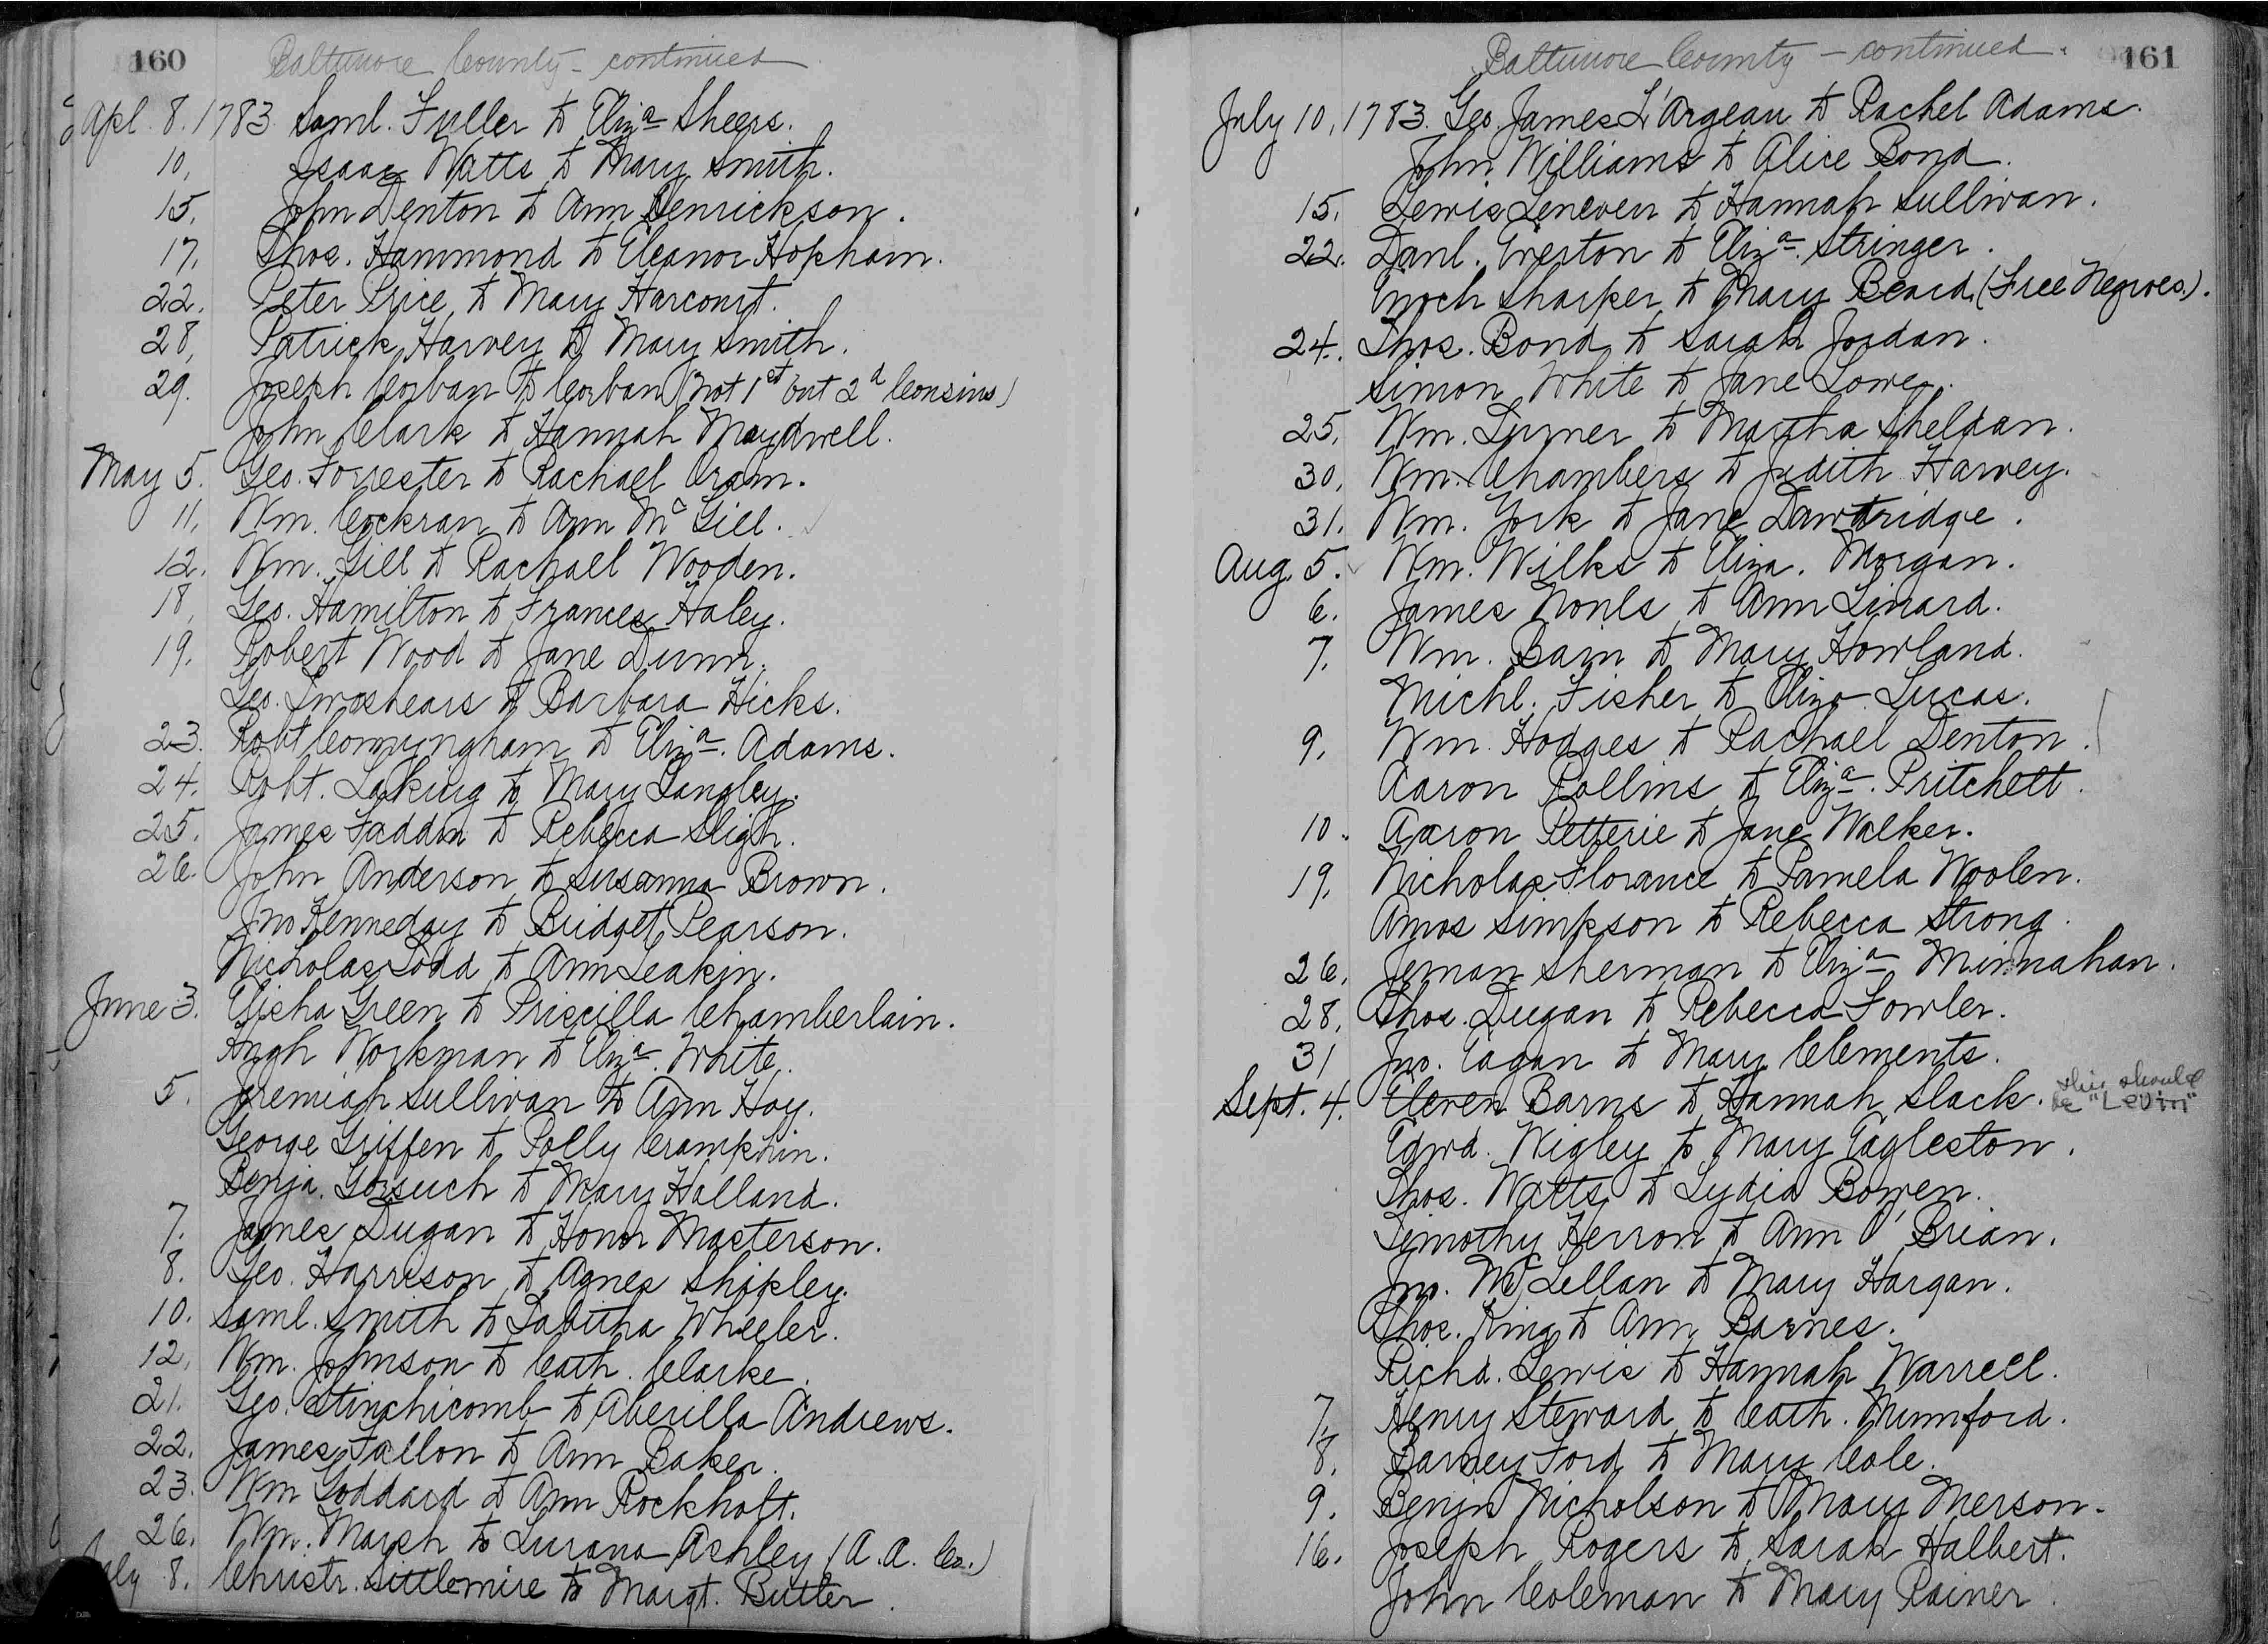 160
Baltimore County - continued
Apl. 8. 1783. Saml. Fuller to Eliza Sheers.
10. Isaac Watts to Mary Smith.
15. John Denton to Ann Henrickson.
17. Thos. Hammond to Eleanor Hopham.
22. Peter Price to Mary Harcourt.
28. Patrick Harvey to Mary Smith.
29. Joseph Corban to Corban (not 1st but 2d Cousins)
John Clark to Hannah Maydwell.
May 5. Geo. Forrester to Rachael Oram.
11. Wm. Cockran to Ann McGill.
12. Wm. Gill to Rachall Wooden.
18. Geo. Hamilton to Frances Haley.
19. Robert Wood to Jane Dunn.
Geo. Twoshears to Barbara Hicks.
23. Robt Conningham to Eliza. Adams.
24. Robt. Laking to Mary Langley.
25. James Faddon to Rebecca Sligh.
26. John Anderson to Susanna Brown.
Jno Kenneday to Bridget Pearson.
Nicholas Todd to Ann Leakin.
June 3. Elisha Green to Priscilla Chamberlain.
Hugh Workman to Eliza. White.
5. Jeremiah Sullivan to Ann Hay.
George Griffen to Polly Crampkin.
Benja. Gorsuch to Mary Holland.
7. James Dugan to Honor Masterson.
8. Geo. Harrison to Agnes Shipley.
10. Saml. Smith to Tabitha Wheeler.
12. Wm. Johnson to Cath. Clarke.
21. Geo. Stinchicomb to Aberilla Andrews.
22. James Fallon to Ann Baker.
23. Wm Goddard to Ann Rockholt.
26. Wm. Marsh to Lurana Ashley (A. A. Co.)
July 8. Christr. Sittlemire to Margt. Butler.
161
Baltimore County - continued.
July 10, 1783. Geo. James L'Argeau to Rachel Adams.
John Williams to Alice Bond.
15. Lewis Leneven to Hannah Sullivan.
22. Danl. Everston to Eliza. Stringer.
Enoch Sharper to Mary Beard. (Free Negroes.).
24. Thos. Bond to Sarah Jordan.
Simon White to Jane Lowe.
25. Wm. Turner to Martha Sheldan.
30. Wm. Chambers to Judith Harvey.
31. Wm. York to Jane Dawtridge.
Aug. 5. Wm. Wilks to Eliza. Morgan.
6. James Nonls to Ann Linard.
7. Wm. Bain to Mary Howland.
Michl. Fisher to Eliza. Lucas.
9. Wm. Hodges to Rachael Denton.
Aaron Rollins to Eliza. Pritchett.
10. Aaron Petterie to Jane Walker.
19. Nicholas Florance to Pamela Woolen.
Amos Simpson to Rebecca Strong.
26. Jeman Sherman to Eliza Minnahan.
28. Thos. Dugan to Rebecca Fowler.
31 Jno. Eagan to Mary Clements.
Sept. 4. Eleven Barns to Hannah Slack. this should be "Levin"
Edwd. Wigley to Mary Eagleston.
Thos. Watts to Lydia Bowen.
Timothy Herron to Ann O'Brian.
Jno. McLellan to Mary Hargan.
Thos. King to Ann Barnes.
Richd. Lewis to Hannah Warrell.
7. Henry Steward to Cath. Mumford.
8. Barney Ford to Mary Cole.
9. Benjn Nicholson to Mary Merson.
16. Joseph Rogers to Sarah Halbert.
John Coleman to Mary Rainer.